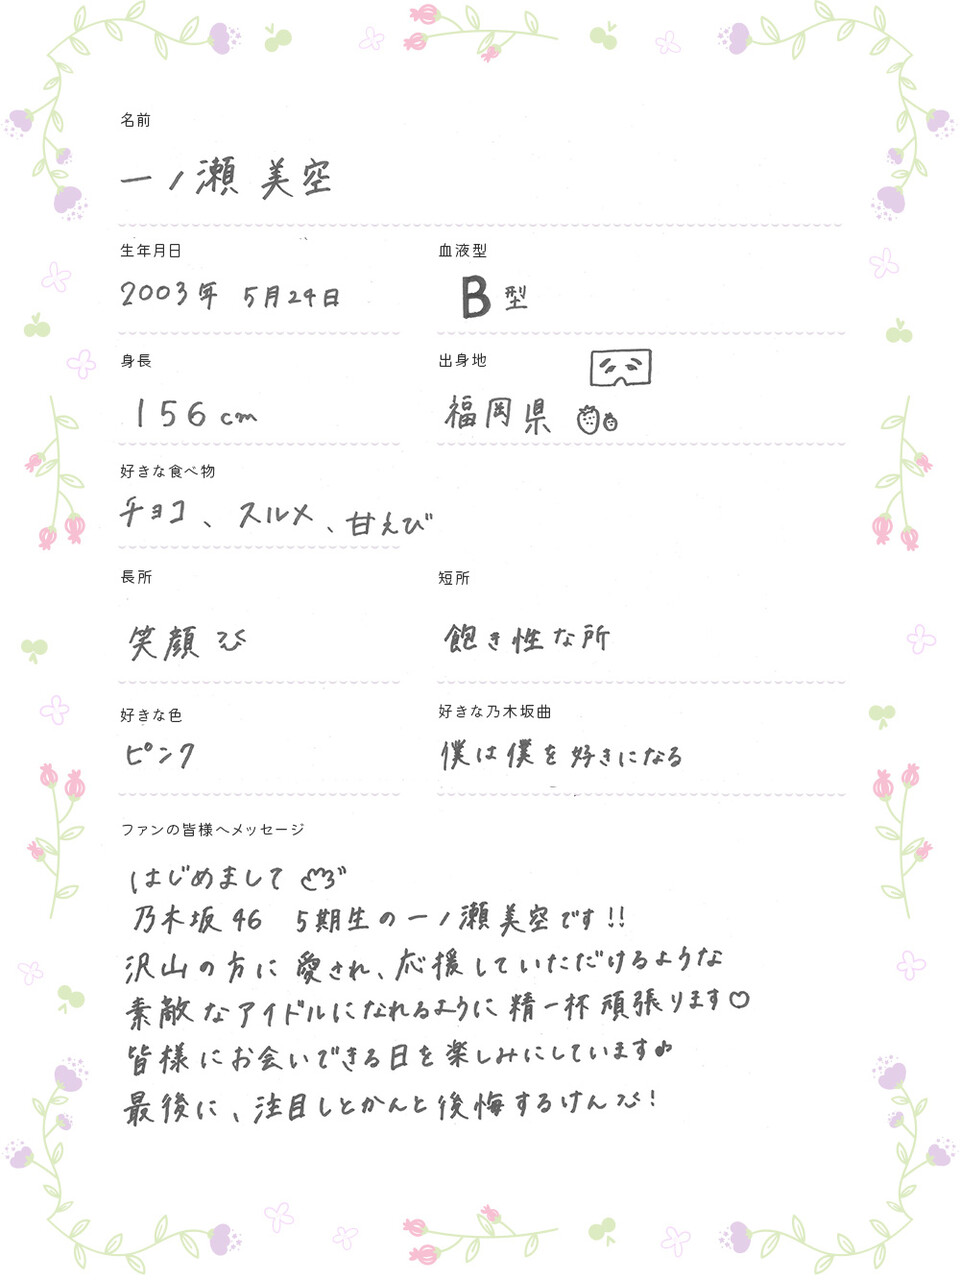 名前
一ノ瀬 美空
生年月日
血液型
2003年 5月24日
B型
身長
出身地
156cm
福岡県
好きな食べ物
チョコ、スルメ、甘えび
長所
短所
笑顔び
飽き性な所
好きな色
好きな乃木坂曲
ピンク
僕は僕を好きになる
ファンの皆様へメッセージ
はじめまして
乃木坂46 5期生の一ノ瀬美空です!!
沢山の方に愛され、応援していただけるような
素敵なアイドルになれるように精一杯頑張ります♡
皆様にお会いできる日を楽しみにしています♪
最後に、注目しとかんと後悔するけんび!